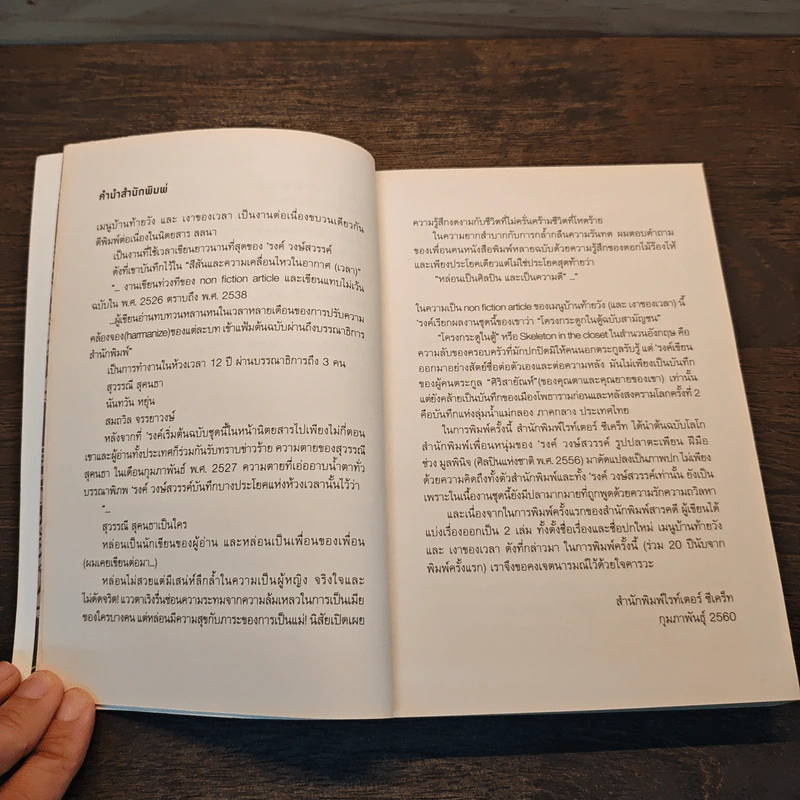 คำนำสำนักพิมพ์
เมนูบ้านท้ายวัง และ เงาของเวลา เป็นงานต่อเนื่องขบวนเดียวกัน
ตีพิมพ์ต่อเนื่องในนิตยสาร ลลนา
เป็นงานที่ใช้เวลาเขียนยาวนานที่สุดของ 'รงค์ วงษ์สวรรค์
ดังที่เขาบันทึกไว้ใน "สีสันและความเคลื่อนไหวในอากาศ (เวลา)"
"... งานเขียนท่วงทีของ non fiction article และเขียนแทบไม่เว้น
ฉบับใน พ.ศ. 2526 ตราบถึง พ.ศ. 2538
...ผู้เขียนอ่านทบทวนหลานหนในเวลาหลายเดือนของการปรับความ
คล้องจอง(harmanize)ของแต่ละบท เข้าแฟ้มต้นฉบับผ่านถึงบรรณาธิการ
สำนักพิมพ์"
เป็นการทำงานในห้วงเวลา 12 ปี ผ่านบรรณาธิการถึง 3 คน
สุวรรณี สุคนธา
นันทวัน หยุ่น
สมถวิล จรรยาวงษ์
หลังจากที่ 'รงค์เริ่มต้นฉบับชุดนี้ในหน้านิตยสารไปเพียงไม่กี่ตอน
เขาและผู้อ่านทั้งประเทศก็ร่วมกันรับทราบข่าวร้าย ความตายของสุวรรณี
สุคนธา ในเดือนกุมภาพันธ์ พ.ศ. 2527 ความตายที่เอ่ออาบน้ำตาทั่ว
บรรณาพิภพ 'รงค์ วงษ์สวรรค์บันทึกบางประโยคแห่งห้วงเวลานั้นไว้ว่า
"...
สุวรรณี สุคนธาเป็นใคร
หล่อนเป็นนักเขียนของผู้อ่าน และหล่อนเป็นเพื่อนของเพื่อน
(ผมเคยเขียนต่อมา...)
หล่อนไม่สวยแต่มีเสน่ห์ลึกล้ำในความเป็นผู้หญิง จริงใจและ
ไม่ดัดจริต! แววตาเริงรื่นซ่อนความระทมจากความล้มเหลวในการเป็นเมีย
ของใครบางคน แต่หล่อนมีความสุขกับภาระของการเป็นแม่! นิสัยเปิดเผย
ความรู้สึกงดงามกับชีวิตที่ไม่ครั่นคร้ามชีวิตที่โหดร้าย
ในความยากลำบากกับการกล้ำกลืนความรันทด ผมตอบคำถาม
ของเพื่อนคนหนังสือพิมพ์หลายฉบับด้วยความรู้สึกของดอกไม้ร้องไห้
และเพียงประโยคเดียวแต่ไม่ใช่ประโยคสุดท้ายว่า
"หล่อนเป็นศิลปิน และเป็นความดี" ..."
ในความเป็น non fiction article ของเมนูบ้านท้ายวัง (และ เงาของเวลา) นี้
'รงค์เรียกผลงานชุดนี้ของเขาว่า "โครงกระดูกในตู้ฉบับสามัญชน"
"โครงกระดูกในตู้" หรือ Skeleton in the closet ในสำนวนอังกฤษ คือ
ความลับของครอบครัวที่มักปกปิดมิให้คนนอกตระกูลรับรู้ แต่ 'รงค์เขียน
ออกมาอย่างสัตย์ซื่อต่อตัวเองและต่อความหลัง มันไม่เพียงเป็นบันทึก
ของผู้คนตระกูล "ศิริเสายัณห์"(ของคุณตาและคุณยายของเขา) เท่านั้น
แต่ยังคล้ายเป็นบันทึกของเมืองโพธารามก่อนและหลังสงครามโลกครั้งที่ 2
คือบันทึกแห่งลุ่มน้ำแม่กลอง ภาคกลาง ประเทศไทย
ในการพิมพ์ครั้งนี้ สำนักพิมพ์ไรท์เตอร์ ซีเคร็ท ได้นำต้นฉบับโลโก
สำนักพิมพ์เพื่อนหนุ่มของ 'รงค์ วงษ์สวรรค์ รูปปลาตะเพียน ฝีมือ
ช่วง มูลพินิจ (ศิลปินแห่งชาติ พ.ศ. 2556) มาดัดแปลงเป็นภาพปก ไม่เพียง
ด้วยความคิดถึงทั้งตัวสำนักพิมพ์และทั้ง 'รงค์ วงษ์สวรรค์เท่านั้น ยังเป็น
เพราะในเนื้องานชุดนี้ยังมีปลามากมายที่ถูกพูดด้วยความรักความถวิลหา
และเนื่องจากในการพิมพ์ครั้งแรกของสำนักพิมพ์สารคดี ผู้เขียนได้
แบ่งเรื่องออกเป็น 2 เล่ม ทั้งตั้งชื่อเรื่องและชื่อปกใหม่ เมนูบ้านท้ายวัง
และ เงาของเวลา ดังที่กล่าวมา ในการพิมพ์ครั้งนี้ (ร่วม 20 ปีนับจาก
พิมพ์ครั้งแรก) เราจึงขอคงเจตนารมณ์ไว้ด้วยใจคารวะ
สำนักพิมพ์ไรท์เตอร์ ซีเคร็ท
กุมภาพันธุ์ 2560